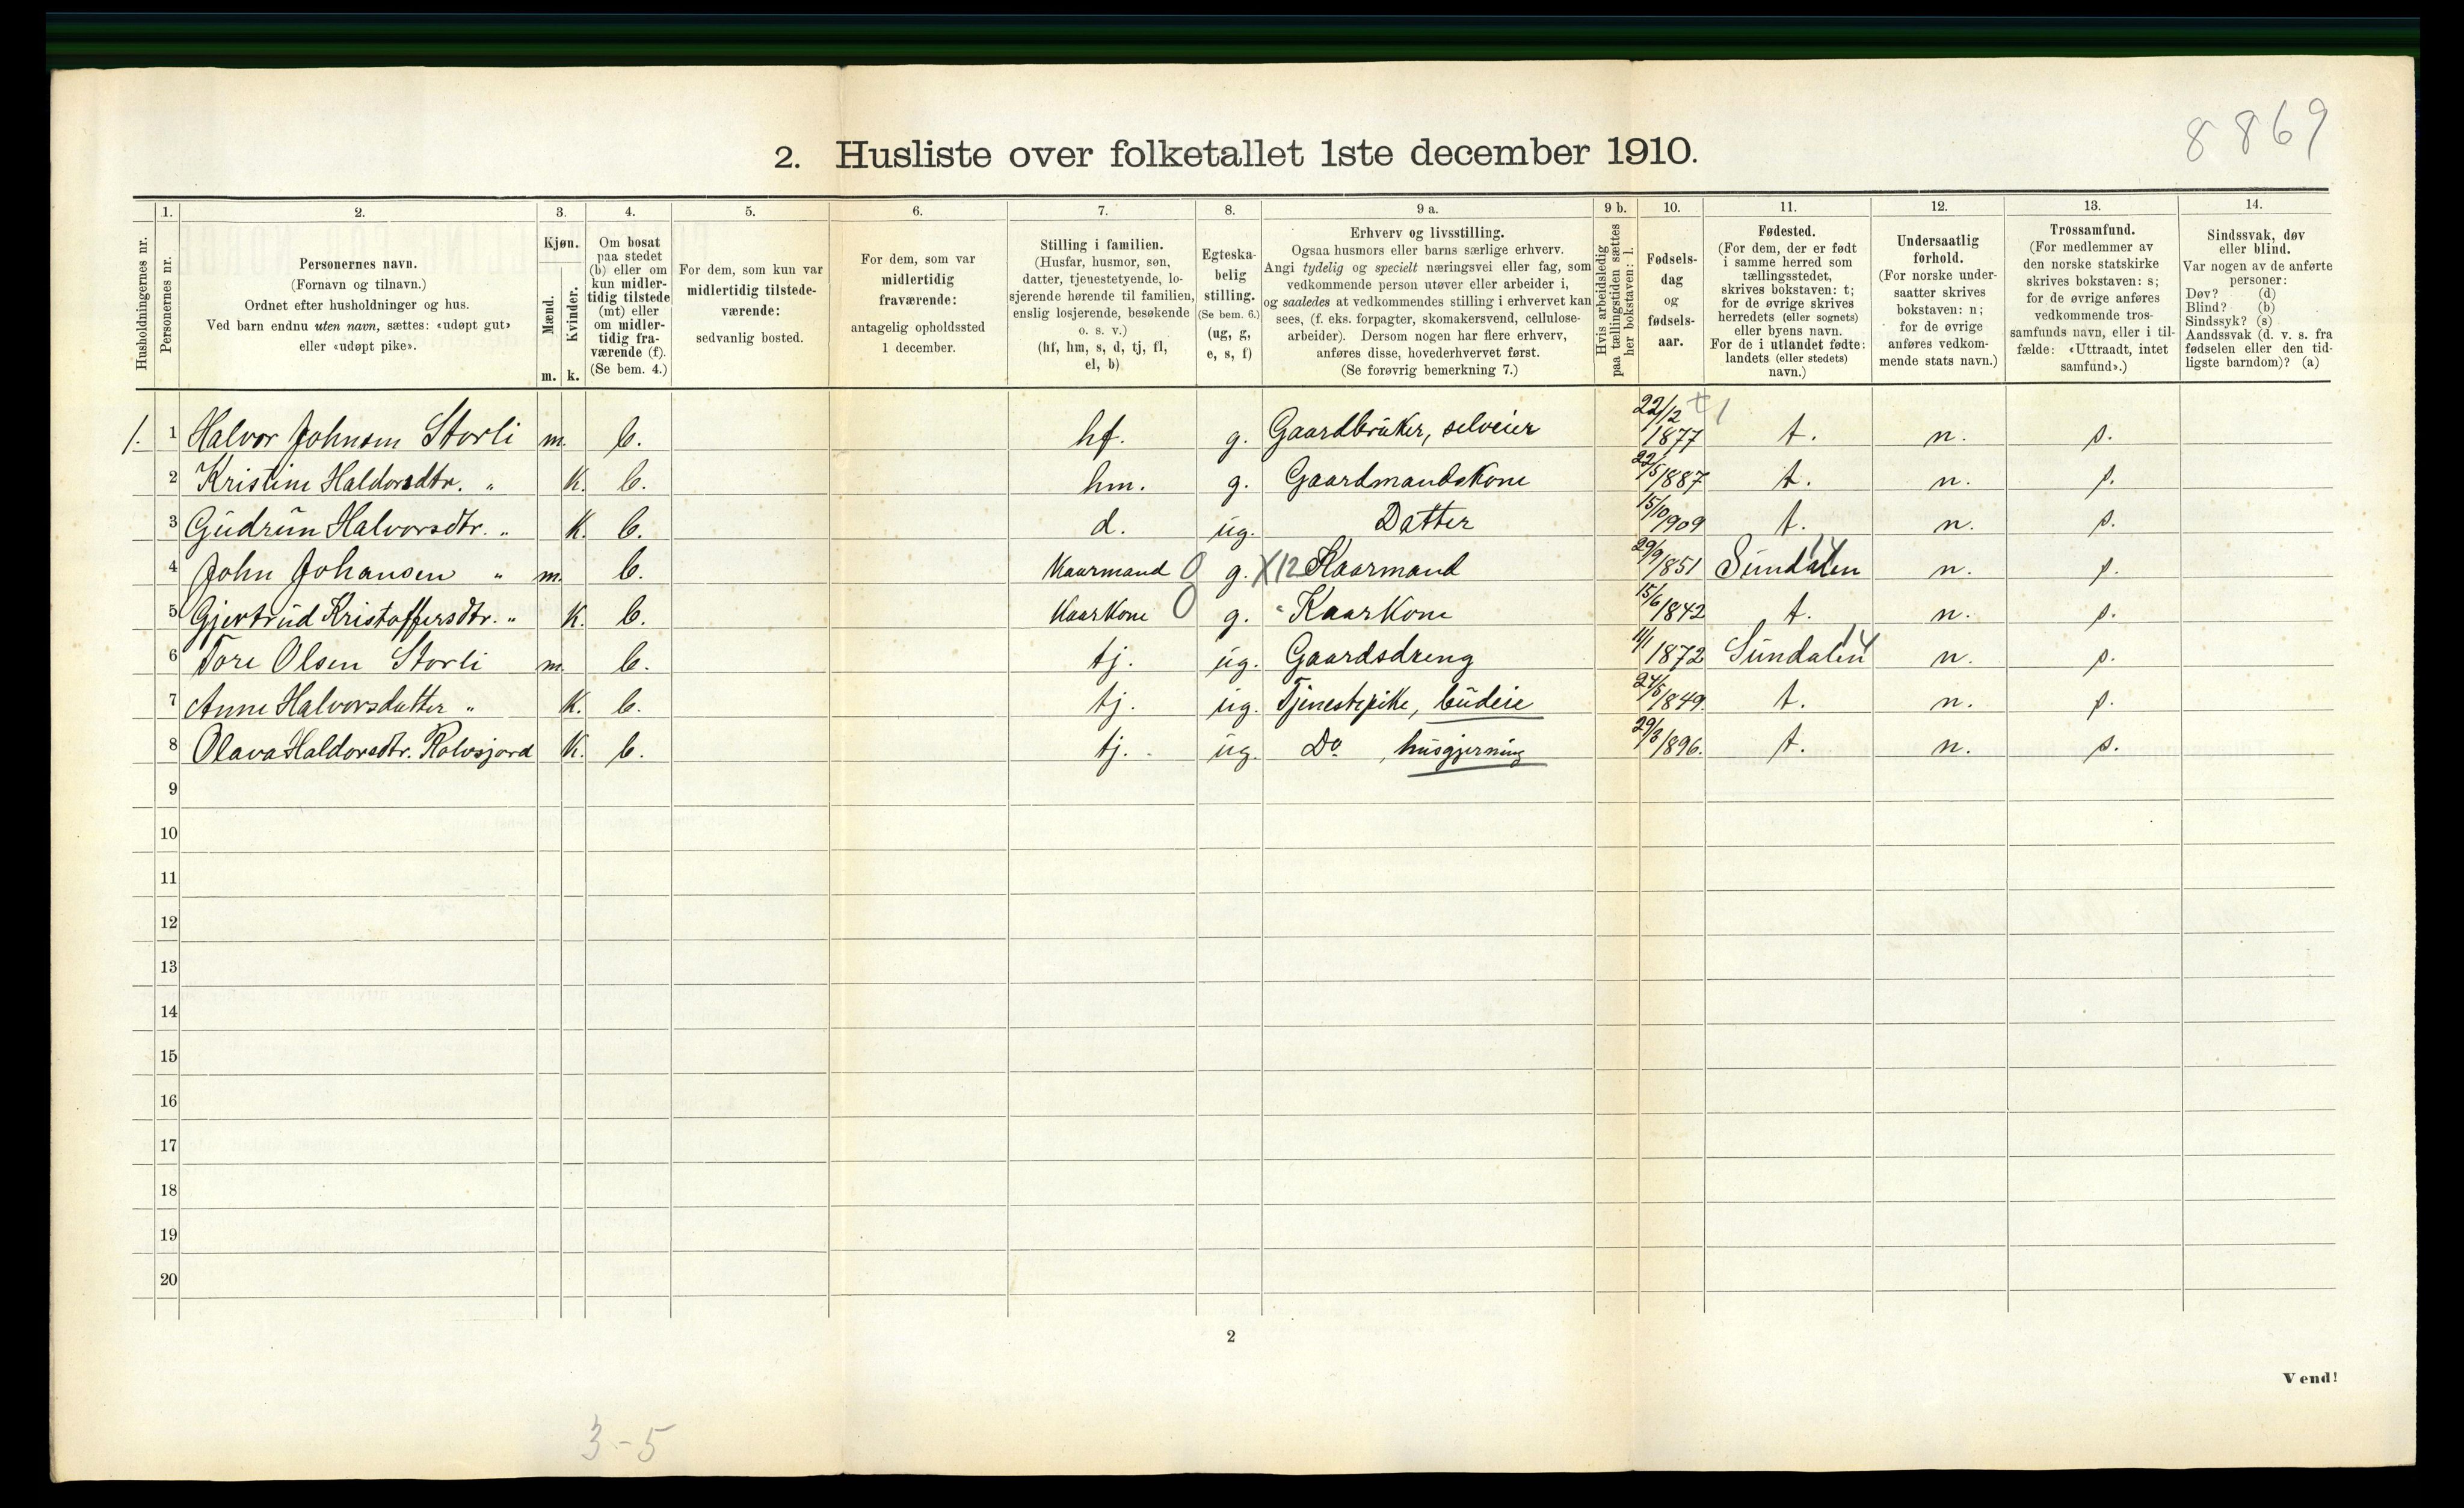 8869
2. Husliste over folketallet 1ste december 1910.
Husholdningernes nr.
1.
Personernes nr.
2.
Personernes navn.
(Fornavn og tilnavn.)
Ordnet efter husholdninger og hus.
Ved barn endnu uten navn, sættes: «udøpt gut»
eller «udøpt pike».
3.
Kjøn.
Mænd.
Kvinder.
m. k.
4.
Om bosat
paa stedet
(b) eller om
kun midler-
tidig tilstede
(mt) eller
om midler-
tidig fra-
værende (f).
(Se bem. 4.)
5.
For dem, som kun var
midlertidig tilstede-
værende:
sedvanlig bosted.
6.
For dem, som var
midlertidig
fraværende:
antagelig opholdssted
1 december.
7.
Stilling i familien.
(Husfar, husmor, søn,
datter, tjenestetyende, lo-
sjerende hørende til familien,
enslig losjerende, besøkende
o. s. v.)
(hf, hm, s, d, tj, fl,
el, b)
8.
Egteska-
belig
stilling.
(Se bem. 6.)
(ug, g,
e, s, f)
9 a.
Erhverv og livsstilling.
Ogsaa husmors eller barns særlige erhverv.
Angi tydelig og specielt næringsvei eller fag, som
vedkommende person utøver eller arbeider i,
og saaledes at vedkommendes stilling i erhvervet kan
sees, (f. eks. forpagter, skomakersvend, cellulose-
arbeider). Dersom nogen har flere erhverv,
anføres disse, hovederhvervet først.
(Se forøvrig bemerkning 7.)
9 b.
Hvis arbeidsledig
paa tællingstiden sættes
her bokstaven: l.
10.
Fødsels-
dag
og
fødsels-
aar.
11.
Fødested.
(For dem, der er født
i samme herred som
tællingsstedet,
skrives bokstaven: t;
for de øvrige skrives
herredets (eller sognets)
eller byens navn.
For de i utlandet fødte:
landets (eller stedets)
navn.)
12.
Undersaatlig
forhold.
(For norske under-
saatter skrives
bokstaven: n;
for de øvrige
anføres vedkom-
mende stats navn.)
13.
Trossamfund.
(For medlemmer av
den norske statskirke
skrives bokstaven: s;
for de øvrige anføres
vedkommende tros-
samfunds navn, eller i til-
fælde: «Uttraadt, intet
samfund».)
14.
Sindssvak, døv
eller blind.
Var nogen av de anførte
personer:
Døv? (d)
Blind? (b)
Sindssyk? (s)
Aandssvak (d. v. s. fra
fødselen eller den tid-
ligste barndom)? (a)
1. 1 Halvor Johnsen Storli m. b. hf. g. Gaardbruker, selveier 22/12 1877 t. n. s.
2 Kristine Haldorsdtr. " k. b. hm. g. Gaardmandskone 22/5 1887 t. n. s.
3 Gudrun Halvorsdtr. " k. b. d. ug. Datter 15/10 1909 t. n. s.
4 John Johansen " m. b. Kaarmand 0 g. X12 Kaarmand 29/9 1851 Sundalen 14 n. s.
5 Gjertrud Kristoffersdtr. " k. b. Kaarkone 0 g. " Kaarkone 15/6 1842 t. n. s.
6 Tore Olsen Storli m. b. tj. ug. Gaardsdreng 11/1 1872 Sundalen 14 n. s.
7 Anne Halvorsdatter " k. b. tj. ug. Tjenestepike, budeie 24/5 1849. t. n. s.
8 Olava Haldorsdtr. Rolvsjord k. b. tj. ug. Do , husgjerning 29/3 1896. t. n. s.
9
10
11
12
13
14
15
16
17
18
19
20
2
Vend!
3-5